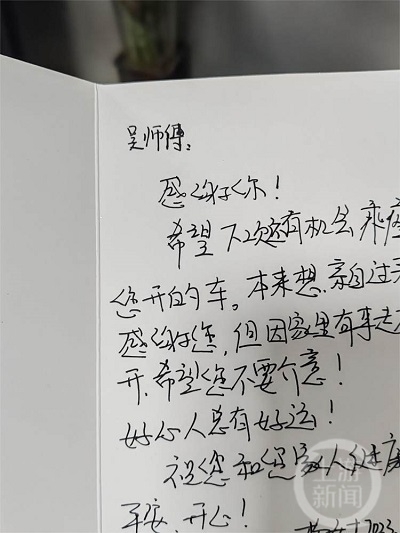 吴师傅：
感谢你！
希望下次还有机会乘
您开的车。本来想亲自过来
感谢您，但因家里有事走不
开，希望您不要介意！
好心人总有好运！
祝您和您家人健康
平安、开心！
2023
上游新闻